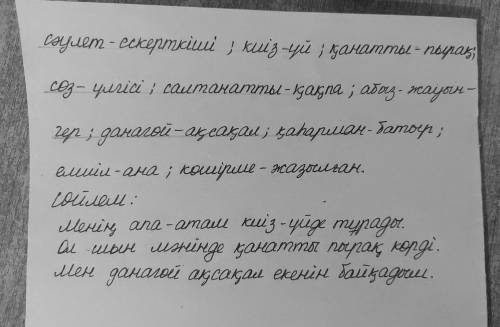 сәулет-ескерткіші ; киіз-үй ; қанатты-пырақ;
сөз-үлгісі ; салтанатты-қақпа ; абыз-жауын-
гер ; данагөй-ақсақал ; қаһарман-батыр ;
емшіл-ана ; көшірме-жазылған.
Сөйлем :
Менің апа-атам киіз-үйде тұрады.
Ол шын мәнінде қанатты пырақ көрді.
Мен данагөй ақсақал екенін байқадым.